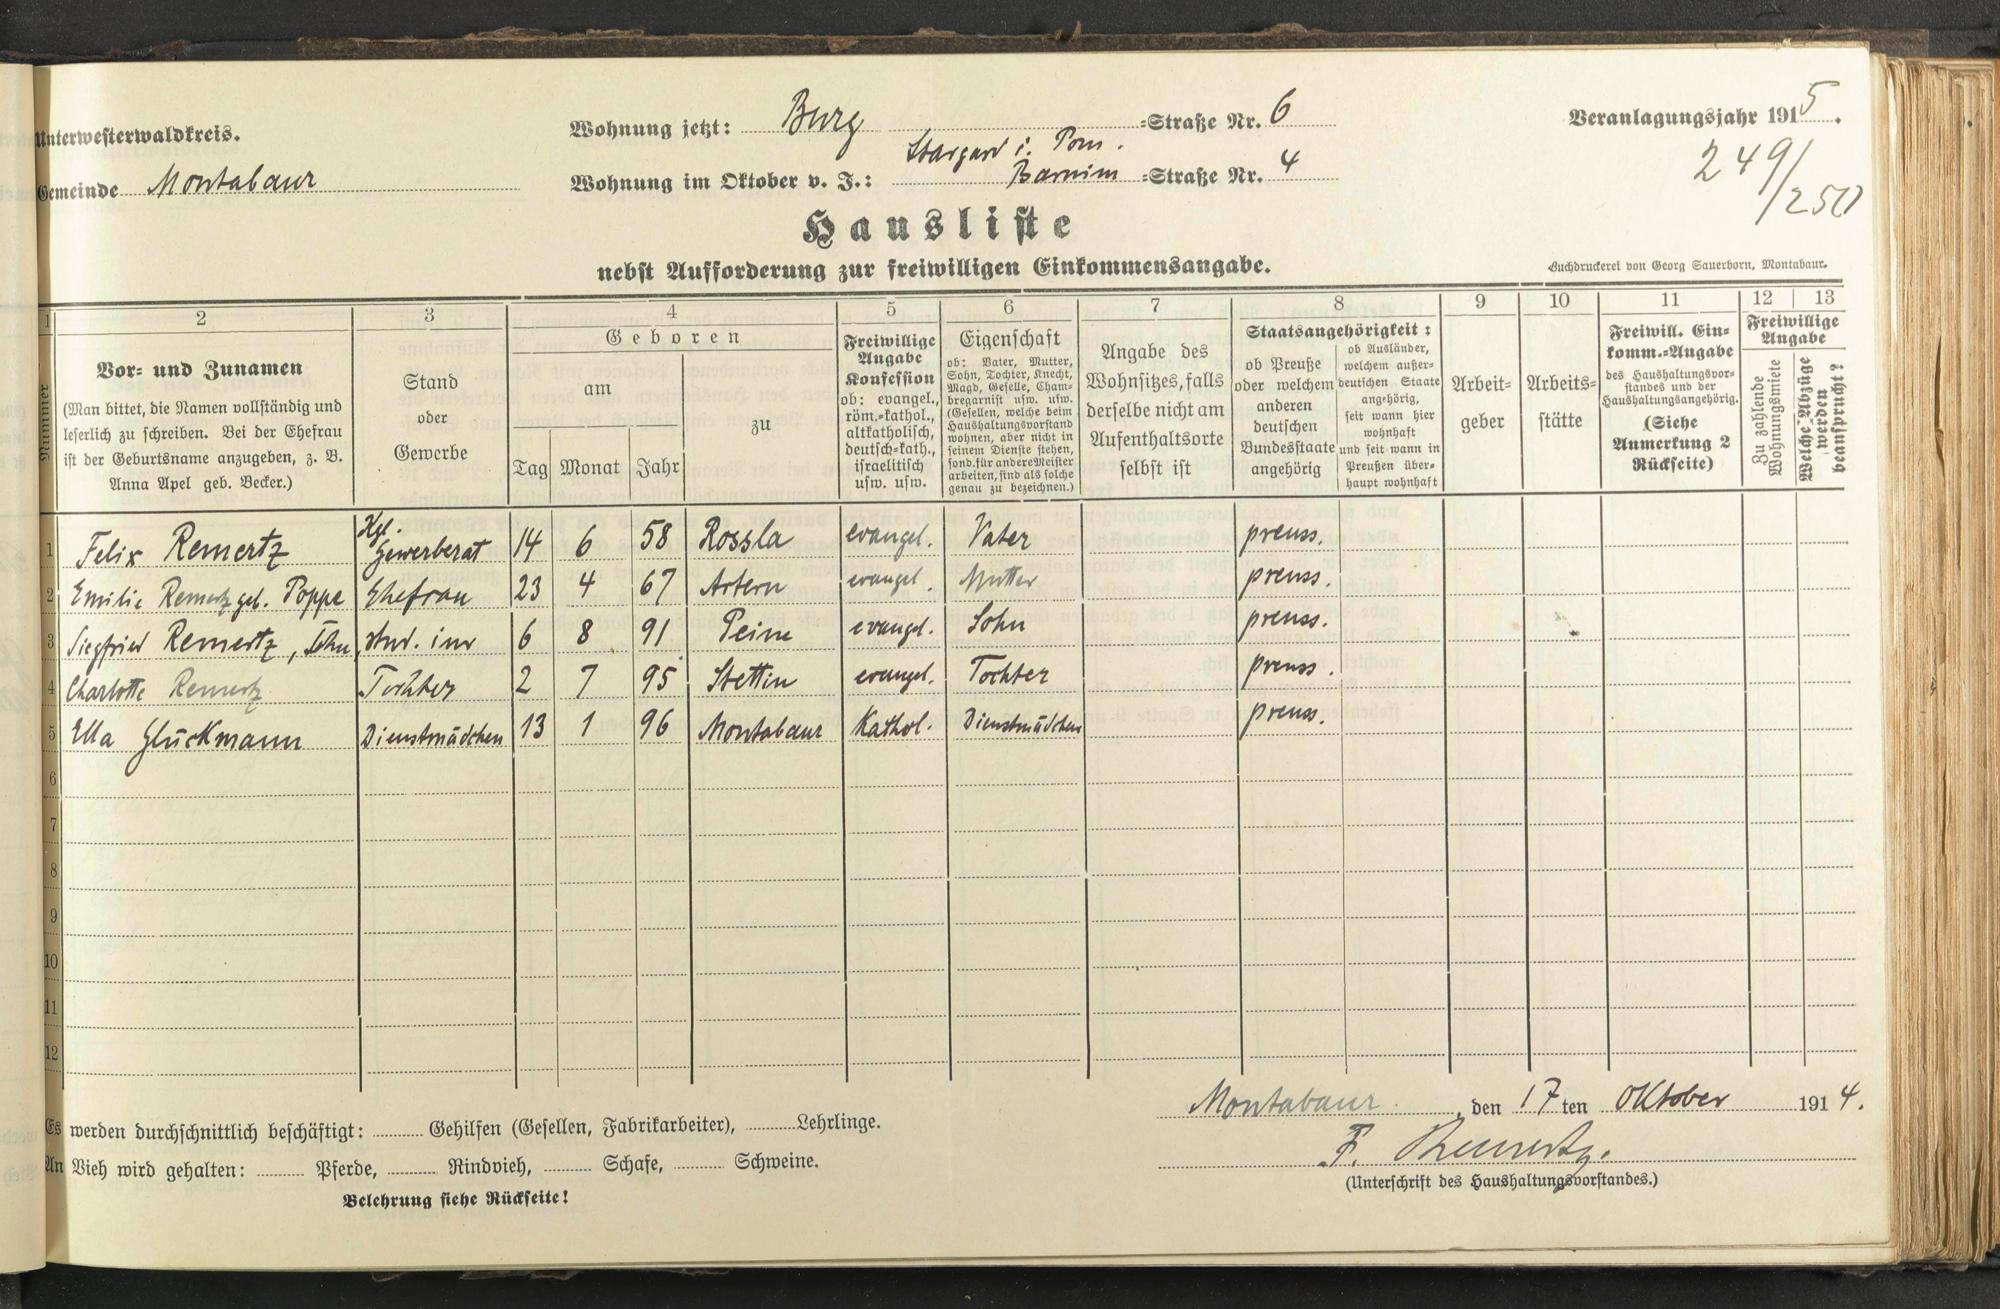 Unterwesterwaldkreis.
Wohnung jetzt: Burg -Straße Nr. 6
Veranlagungsjahr 1915.
Stargard i. Pom.
Gemeinde Montabaur
Wohnung im Oktober v. J.: Barnim -Straße Nr. 4
249/250
Hausliste
nebst Aufforderung zur freiwilligen Einkommensangabe.
Buchdruckerei von Georg Sauerborn, Montabaur.
1 2 3 4 5 6 7 8 9 10 11 12 13
Nummer
Vor- und Zunamen
(Man bittet, die Namen vollständig und
leserlich zu schreiben. Bei der Ehefrau
ist der Geburtsname anzugeben, z. B.
Anna Apel geb. Becker.)
Stand
oder
Gewerbe
Geboren
am
Tag Monat Jahr
zu
Freiwillige
Angabe
Konfession
ob: evangel.,
röm.-kathol.,
altkatholisch,
deutsch-kath.,
israelitisch
usw. usw.
Eigenschaft
ob: Vater, Mutter,
Sohn, Tochter, Knecht,
Magd, Geselle, Cham-
bregarnist usw. usw.
(Gesellen, welche beim
Haushaltungsvorstand
wohnen, aber nicht in
seinem Dienste stehen,
sond. für andere Meister
arbeiten, sind als solche
genau zu bezeichnen.)
Angabe des
Wohnsitzes, falls
derselbe nicht am
Aufenthaltsorte
selbst ist
Staatsangehörigkeit:
ob Preuße
oder welchem
anderen
deutschen
Bundesstaate
angehörig
ob Ausländer,
welchem außer-
deutschen Staate
angehörig,
seit wann hier
wohnhaft
und seit wann in
Preußen über-
haupt wohnhaft
Arbeit-
geber
Arbeits-
stätte
Freiwill. Ein-
komm.-Angabe
des Haushaltungsvor-
standes und der
Haushaltungsangehörig.
(Siehe
Anmerkung 2
Rückseite)
Freiwillige
Angabe
Zu zahlende
Wohnungsmiete
Welche Abzüge
werden
beansprucht?
1 Felix Remertz Kgl. Gewerberat 14 6 58 Rossla evangel. Vater preuss.
2 Emilie Remertz geb. Poppe Ehefrau 23 4 67 Artern evangel. Mutter preuss.
3 Siegfried Remertz, Sohn, stud. iur 6 8 91 Peine evangel. Sohn preuss.
4 Charlotte Remertz Tochter 2 7 95 Stettin evangel. Tochter preuss.
5 Ella Glückmann Dienstmädchen 13 1 96 Montabaur Kathol. Dienstmädchen preuss.
6
7
8
9
10
11
12
Montabaur, den 17ten Oktober 1914.
Es werden durchschnittlich beschäftigt: Gehilfen (Gesellen, Fabrikarbeiter), Lehrlinge.
F. Remertz.
An Vieh wird gehalten: Pferde, Rindvieh, Schafe, Schweine.
(Unterschrift des Haushaltungsvorstandes.)
Belehrung siehe Rückseite!